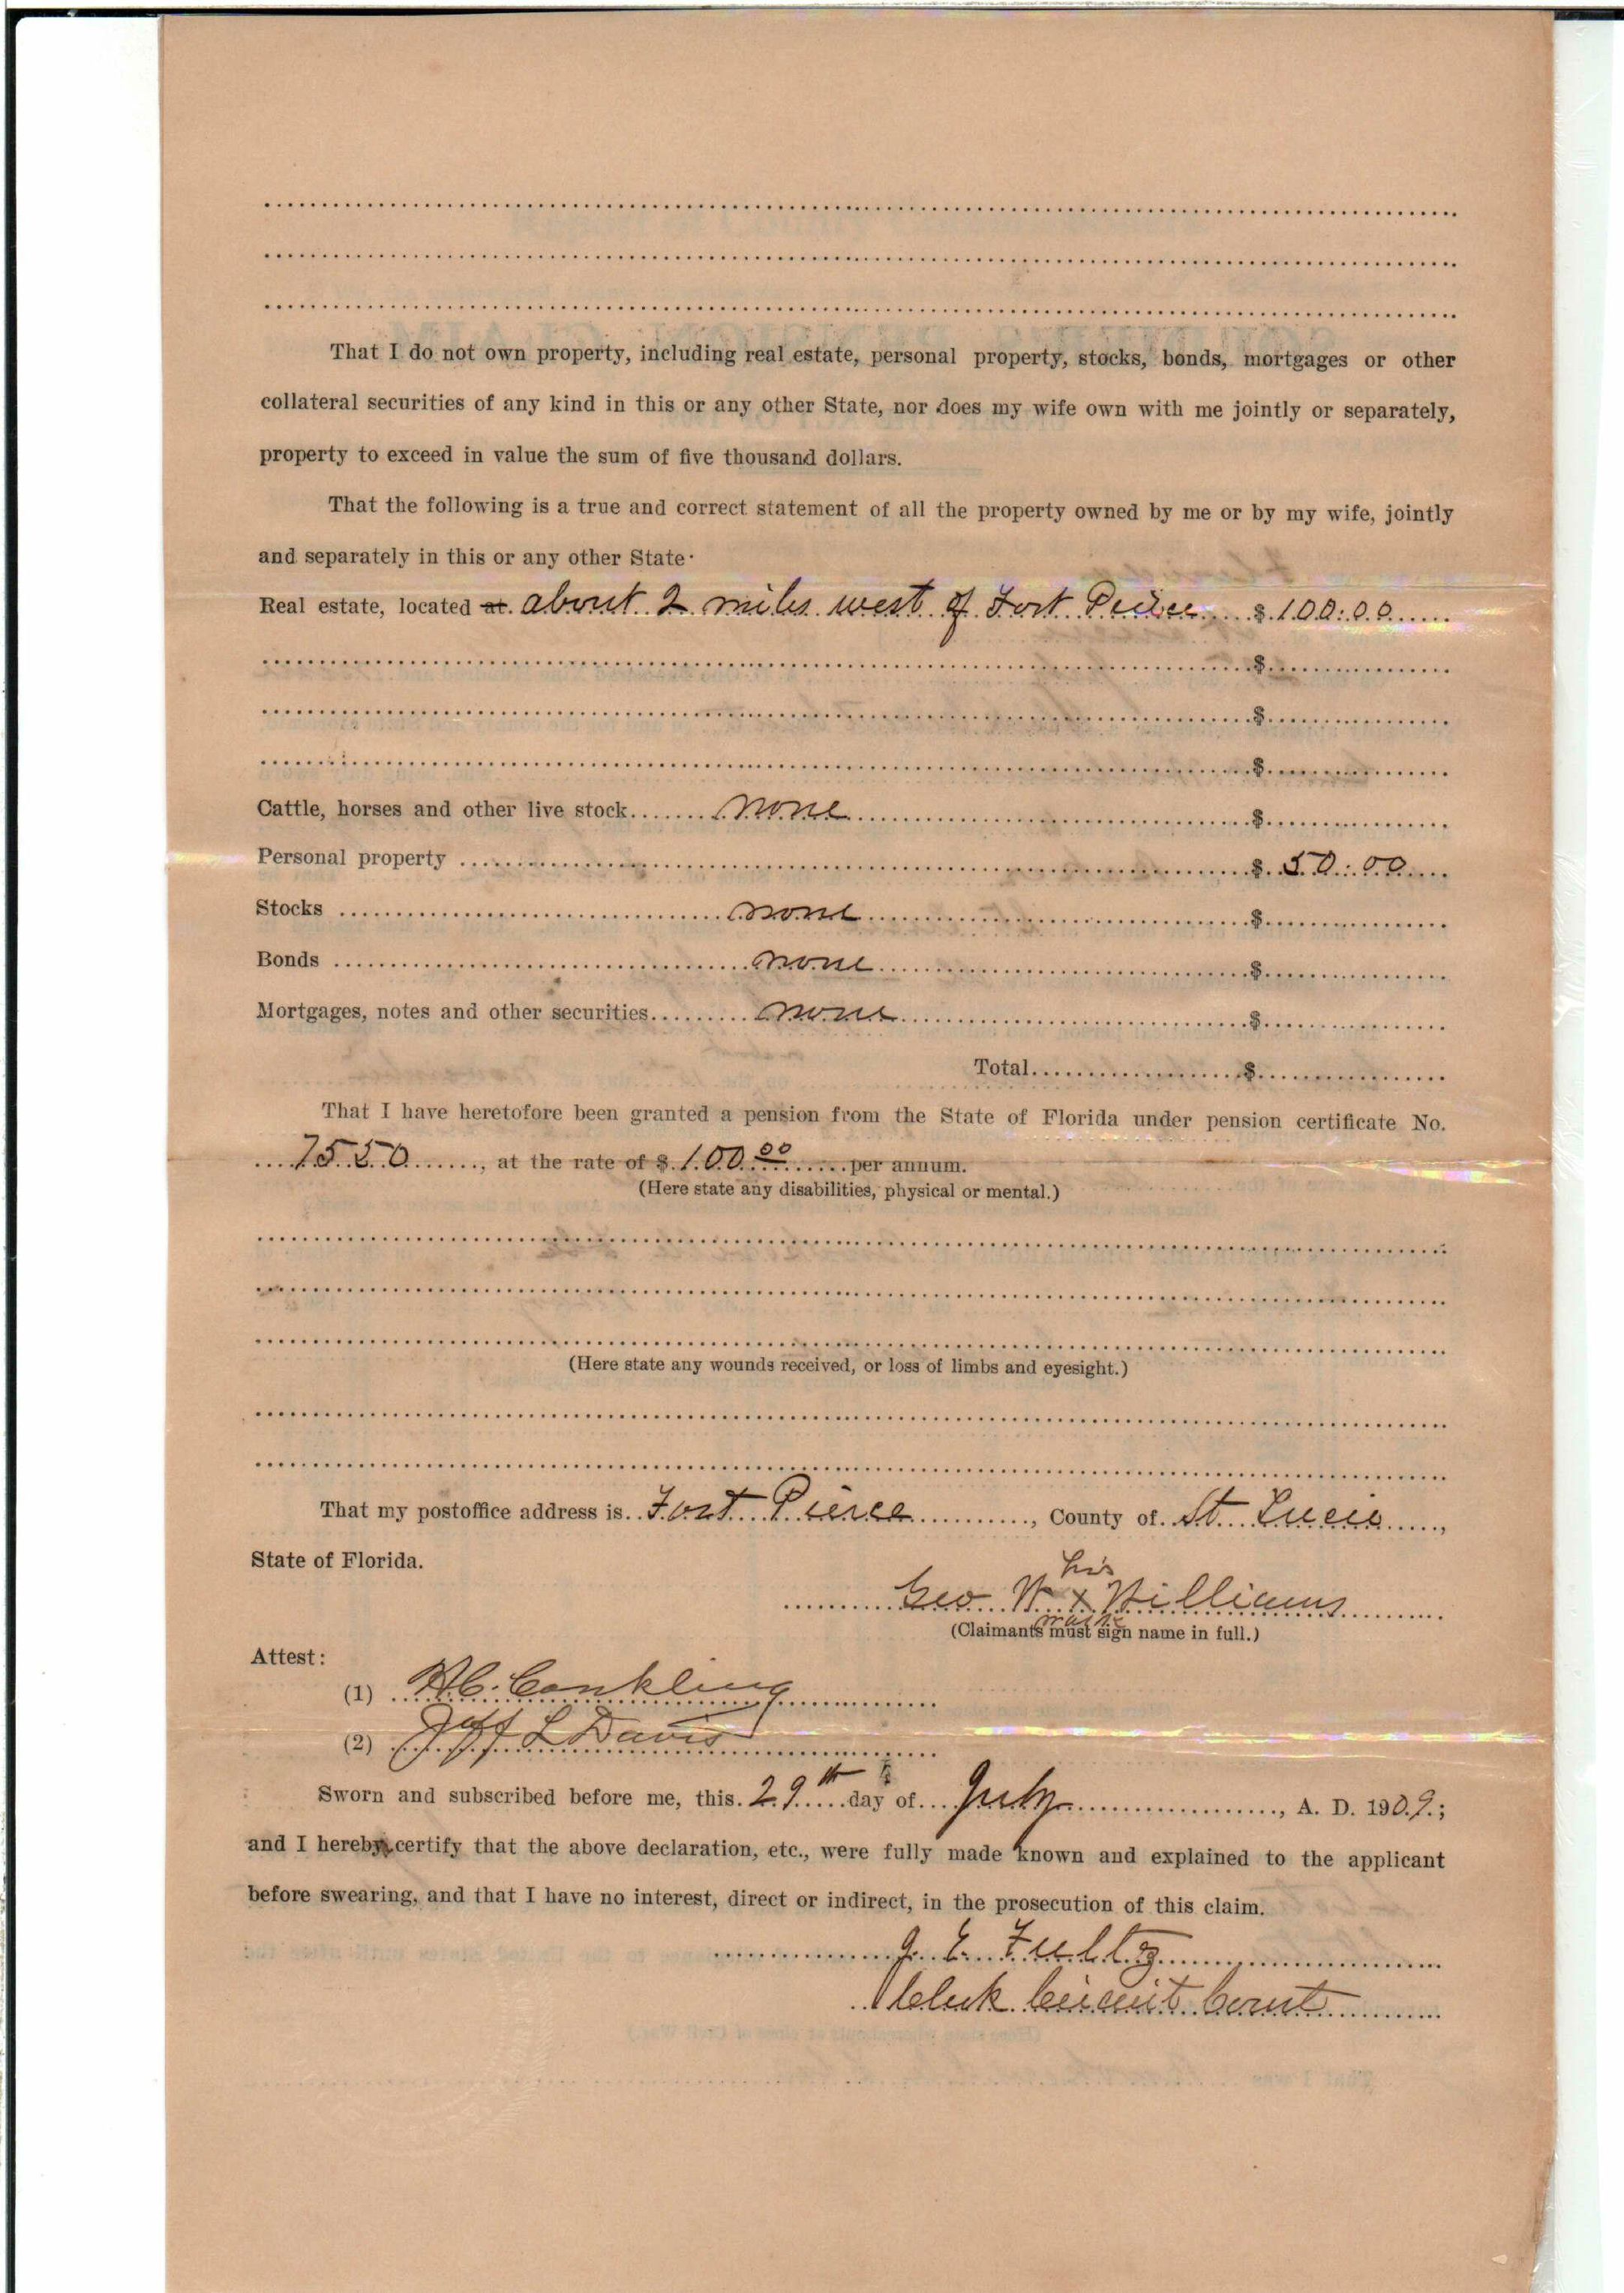 That I do not own property, including real estate, personal property, stocks, bonds, mortgages or other
collateral securities of any kind in this or any other State, nor does my wife own with me jointly or separately,
property to exceed in value the sum of five thousand dollars.
That the following is a true and correct statement of all the property owned by me or by my wife, jointly
and separately in this or any other State·
Real estate, located at about 2 miles west of Fort Peirce $ 100:00
$
$
$
Cattle, horses and other live stock none $
Personal property $ 50:00
Stocks none $
Bonds none $
Mortgages, notes and other securities none $
Total $
That I have heretofore been granted a pension from the State of Florida under pension certificate No.
7550, at the rate of $ 100.00 per annum.
(Here state any disabilities, physical or mental.)
(Here state any wounds received, or loss of limbs and eyesight.)
That my postoffice address is Fort Pierce, County of St. Lucie,
State of Florida.
his
Geo W x Williams
mark
(Claimants must sign name in full.)
Attest:
(1) Conkling
(2) Jeff L Davis
Sworn and subscribed before me, this 29th day of July, A. D. 1909;
and I hereby certify that the above declaration, etc., were fully made known and explained to the applicant
before swearing, and that I have no interest, direct or indirect, in the prosecution of this claim.
J. E. Fultz
Clerk Circuit Court